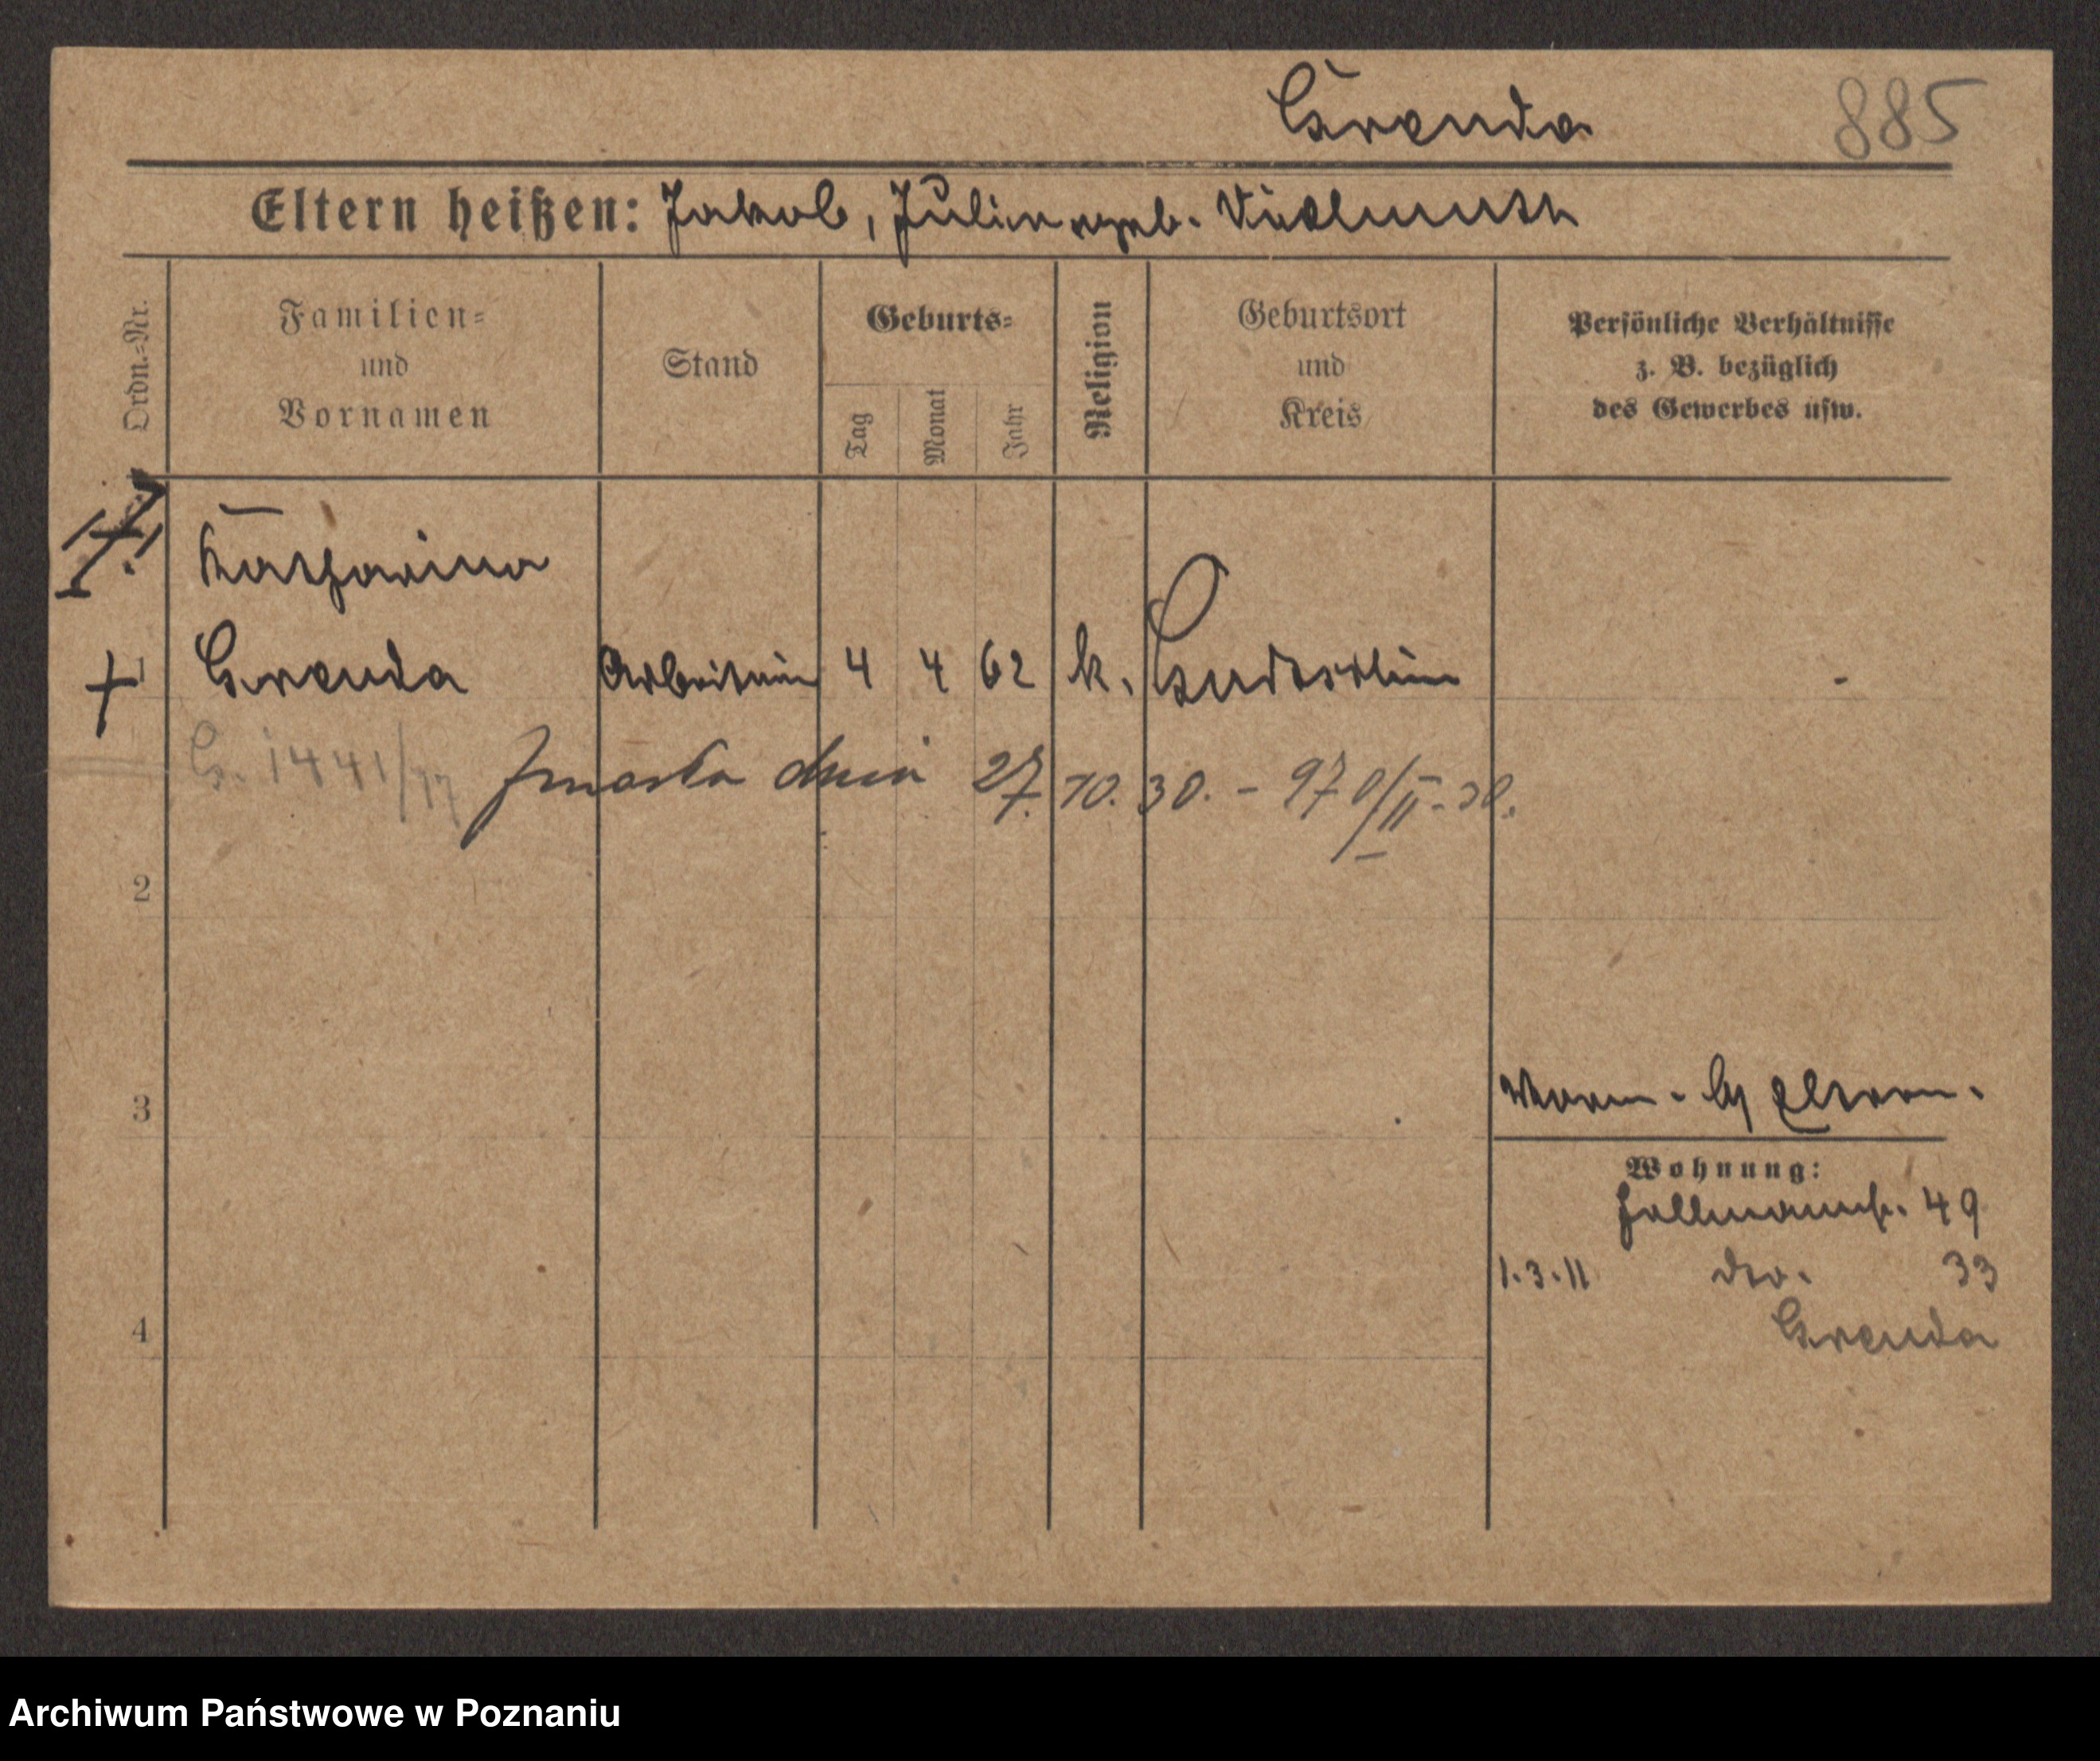 Grenda 885
Eltern heißen: Jakob, Julianna geb.
Ordn.-Nr.
Familien=
und
Vornamen
Stand
Geburts=
Tag
Monat
Jahr
Religion
Geburtsort
und
Kreis
Persönliche Verhältnisse
z. B. bezüglich
des Gewerbes usw.
Katharina
1 Grenda Arbeiterin 4 4 62 k. -
G. 1441/17 Zmarła dnia 27. 10. 30. - 970/II-30.
2
3
4
Wohnung:
Hallmannstr. 49
1.3.11 dto. 33
Grenda
Archiwum Państwowe w Poznaniu